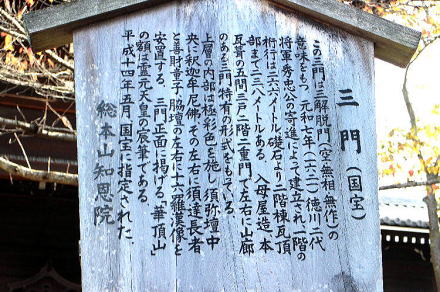 三門(国宝)
この三門は三解脱門(空・無相・無作)の
意味をもつ。元和七年(一六二一)徳川二代
将軍秀忠公の寄進によって建立され一階の
桁行は二六・六メートル。礎石より二階棟瓦頂
部まで二三・八メートルある。入母屋造本
瓦葺の五間三戸二階二重門で左右に山廊
のある三門特有の形式をもっている。
上層の内部は極彩色を施し、須弥壇中
央に釈迦牟尼佛、その左右に須達長者
と善財童子、脇壇の左右に十六羅漢像を
安置する。三門正面に掲げる「華頂山」
の額は霊元天皇の宸筆である。
平成十四年五月、国宝に指定された。
総本山知恩院